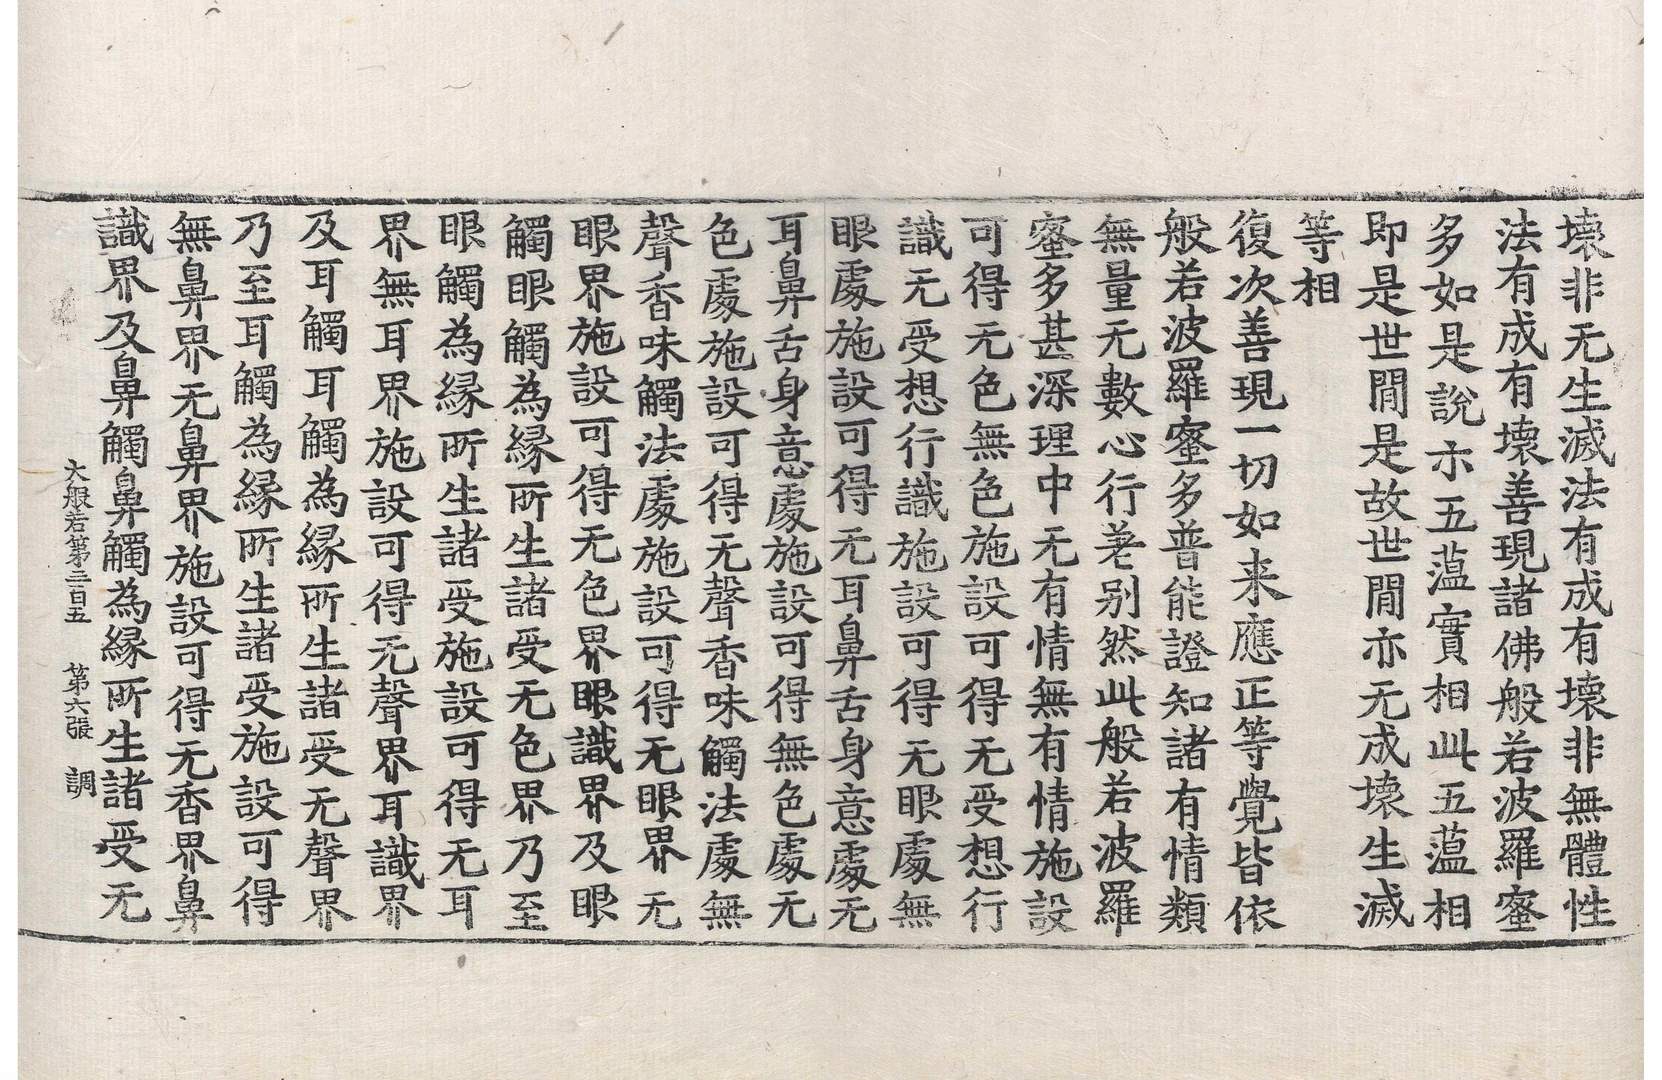 壞非无生滅法有成有壞非無體性
法有成有壞善現諸佛般若波羅蜜
多如是說示五蕴實相此五蕴相
即是世閒是故世閒亦无成壞生滅
等相
復次善現一切如来應正等覺皆依
般若波羅蜜多普能證知諸有情類
無量无數心行差别然此般若波羅
蜜多甚深理中无有情無有情施設
可得无色無色施設可得无受想行
識无受想行識施設可得无眼處無
眼處施設可得无耳鼻舌身意處无
耳鼻舌身意處施設可得無色處无
色處施設可得无聲香味觸法處無
聲香味觸法處施設可得无眼界无
眼界施設可得无色界眼識界及眼
觸眼觸為緣所生諸受无色界乃至
眼觸為緣所生諸受施設可得无耳
界無耳界施設可得无聲界耳識界
及耳觸耳觸為緣所生諸受无聲界
乃至耳觸為緣所生諸受施設可得
無鼻界无鼻界施設可得无香界鼻
識界及鼻觸鼻觸為緣所生諸受无
大般若第三百五 第六張 調